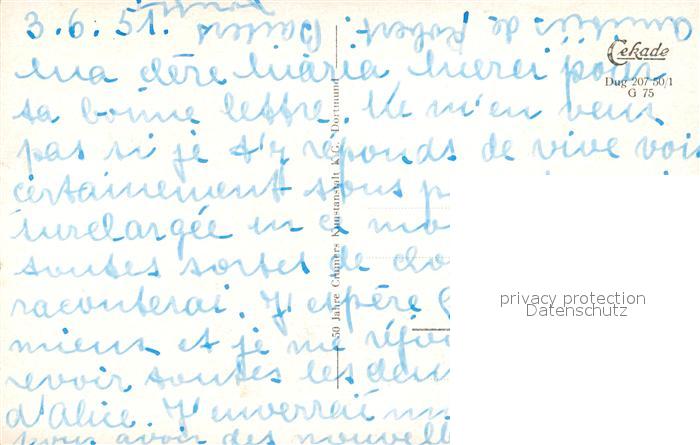 3.6.51.
amitiés de Robert
Cekade
Dug 207 50/1
G 75
50 Jahre Cramers Kunstanstalt K.G. Dortmund
ma chère Maria merci pour
ta bonne lettre. Ne m'en veux
pas si je t'y réponds de vive voix
certainement sous p
surchargée en ce mo
toutes sortes de cho
raconterai. J'espère
mieux et je me réjou
revoir toutes les deux
d'Alice. J'enverrai un
pour avoir des nouvell
privacy protection
Datenschutz